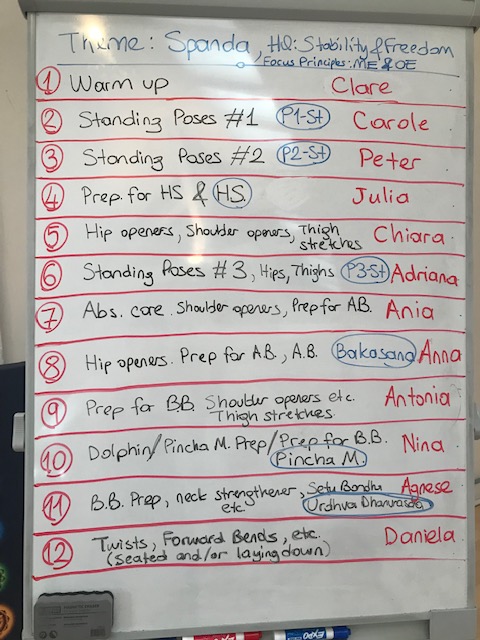 Theme: Spanda, HQ: Stability & Freedom
Focus Principles: ME & OE
1 Warm up Clare
2 Standing Poses #1 P1-St Carole
3 Standing Poses #2 P2-St Peter
4 Prep. for HS & HS. Julia
5 Hip openers, Shoulder openers, Thigh
stretches Chiara
6 Standing Poses #3, Hips, Thighs P3-St Adriana
7 Abs. core. Shoulder openers, Prep for AB. Ania
8 Hip openers. Prep for A.B., A.B. Bakasana Anna
9 Prep for B.B. Shoulder openers etc. Antonia
Thigh stretches
10 Dolphin/Pincha M. Prep/Prep for B.B. Nina
Pincha M.
11 B.B. Prep, neck strengthener, Setu Bandha Agnese
etc Urdhva
12 Twists, Forward Bends, etc. Daniela
(seated and/or laying down)
EXPO
EXPO